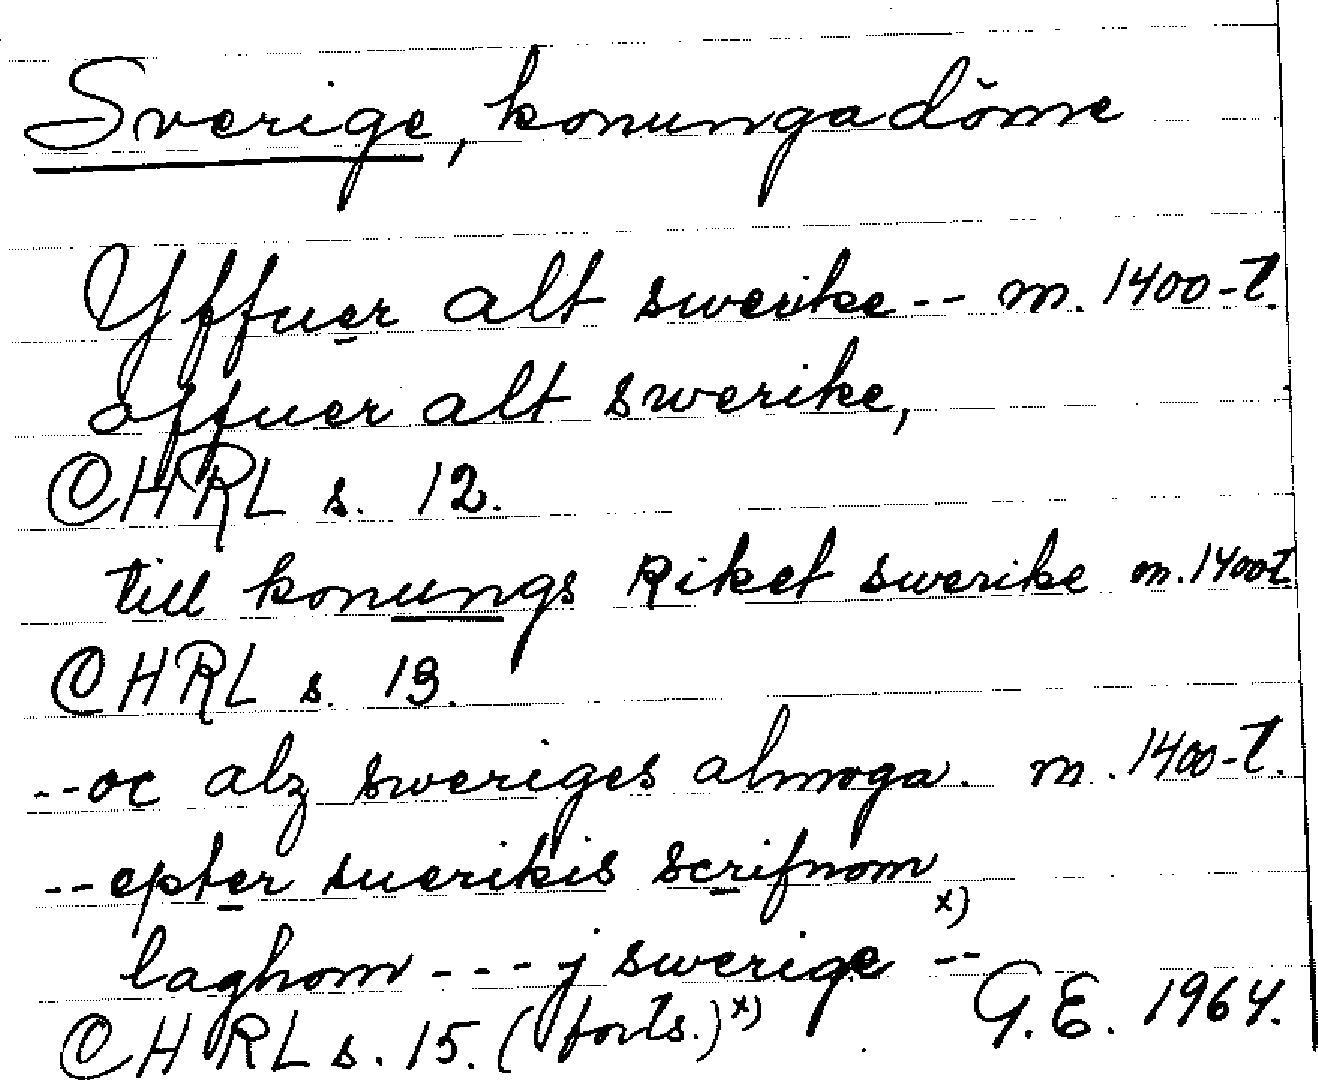 Sverige, konungadöme
Yffuer alt swerike -- m. 1400-t.
offuer alt swerike,
CHRL s. 12.
till konungs Riket swerike m. 1400t
CHRL s. 13.
-- oc alz sweriges almoga. m. 1400-t.
-- epter suerikis scrifnom
laghom --- j swerige -- x)
CHRL s. 15. (forts.) x) G.E. 1964.